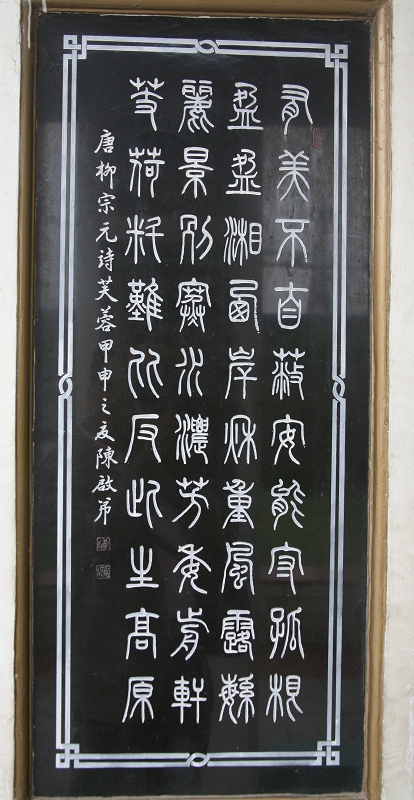 有美不自蔽安能守孤根
盈盈湘西岸秋重風露緐
麗景別寒水濃芳委前軒
芰荷難反此生高原
唐柳宗元詩芙蓉甲申之夏陳啟